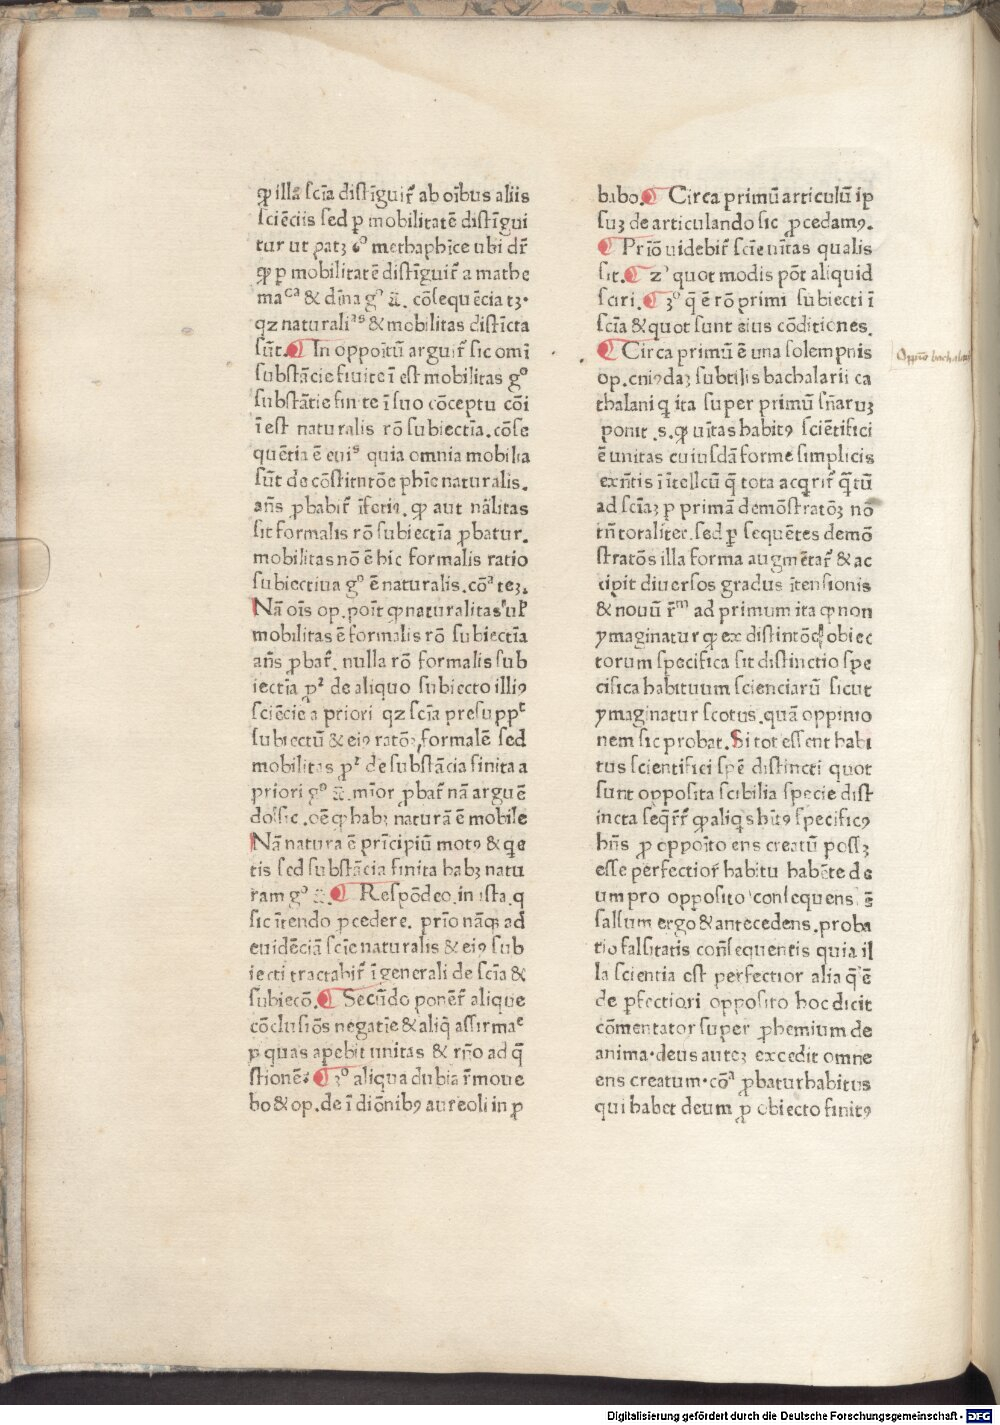 ꝙ illā sciā distīguit̄ ab oībus aliis
sciēciis sed ꝑ mobilitatē distīgui
tur ut patꝫ 6° methaphīce ubi dr̄
ꝙ ꝑ mobilitatē distīguit̄ a mathe
maᶜᵃ & dīna g° ⁊̄. cōsequēcia tꝫ.
qz naturaliᵃˢ & mobilitas distīcta
sūt. ¶ In oppoītū arguit̄ sic omī
substācie fiuite ī est mobilitas g°
substātie finite ī suo cōceptu cōi
ī est naturalis rō subiectīa. cōse
quētia ē euiˢ quia omnia mobilia
sūt de cōstitntōe phīce naturalis.
an̄s ꝓbabit̄ īferiꝰ. ꝙ aut nālitas
sit formalis rō subiectīa ꝓbatur.
mobilitas nō ē hic formalis ratio
subiectiua g° ē naturalis. cōᵃ teꝫ.
Nā oīs op. poīt ꝙ naturalitas ul̄
mobilitas ē formalis rō subiectīa
an̄s ꝓbat̄. nulla rō formalis sub
iectīa pᵗ de aliquo subiecto illiꝰ
sciēcie a priori qz scīa presuppᵗ
subiectū & eiꝰ ratōꝫ formalē sed
mobilitas pᵗ de substācia finita a
priori g° ⁊̄. mīor ꝓbat̄ nā arguē
do sic. oē ꝙ habꝫ naturā ē mobile
Nā natura ē prīcipiū motꝰ & qe
tis sed substācia finita habꝫ natu
ram g° ⁊̄. ¶ Respōdeo. in ista. q
sic ītendo ꝓcedere. prīo nāꝙ ad
euidēciā scīe naturalis & eiꝰ sub
iecti tractabit̄ ī generali de scīa &
subiecō. ¶ Secūdo ponēt̄ alique
cōclusiōs negatīe & aliq̄ assirmaᵉ
ꝑ quas apebit unitas & rn̄o ad q̄
stionē. ¶ 3° aliqua dubia r̄moue
bo & op. de ī diōnibꝰ aureoli in ꝓ
babo. ¶ Circa primū articulū ip
suꝫ de articulando sic ꝓcedamꝰ.
¶ Prīo uidebit̄ scīe uītas qualis
sit. ¶ 2° quot modis pōt aliquid
sciri. ¶ 3° q̄ ē rō primi subiecti ī
scīa & quot sunt eius cōditiones.
¶ Circa primū ē una solempnis
op. cniꝰdaꝫ subtilis bachalarii ca
thalani q ita super primū sn̄aruꝫ
ponit .s. ꝙ uītas habitꝰ sciētifici
ē unitas cuiusdā forme simplicis
exn̄tis ī ītellcū q̄ tota acqrit̄ q̄tū
ad scīaꝫ ꝑ primā demōstratōꝫ nō
tn̄ toraliteꝛ. sed ꝑ sequētes demō
stratōs illa forma augmētat̄ & ac
cipit diuersos gradus ītensionis
& nouū r̄ᵐ ad primum ita ꝙ non
ymaginatur ꝙ ex distintōe obiec
torum specifica sit distinctio spe
cifica habituum scienciarū sicut
ymaginatur scotus. quā oppinio
nem sic probat. Si tot essent habi
tus scientifici spē distincti quot
sunt opposita scibilia specie dist
incta seq̄r̄ ꝙ aliqs hītꝰ specificꝰ
hn̄s ꝓ oppoīto ens creatū possꝫ
esse perfectior̄ habitu habēte de
um pro opposito consequens ē
falsum ergo & antecedens. proba
tio falsitatis con̄sequentis quia il
la scientia est perfectior alia q̄ ē
de ꝑfectiori opposito hoc dicit
cōmentator super ꝓhemium de
anima. deus auteꝫ excedit omne
ens creatum. cōᵃ ꝓbatur habitus
qui habet deum ꝓ obiecto finitꝰ